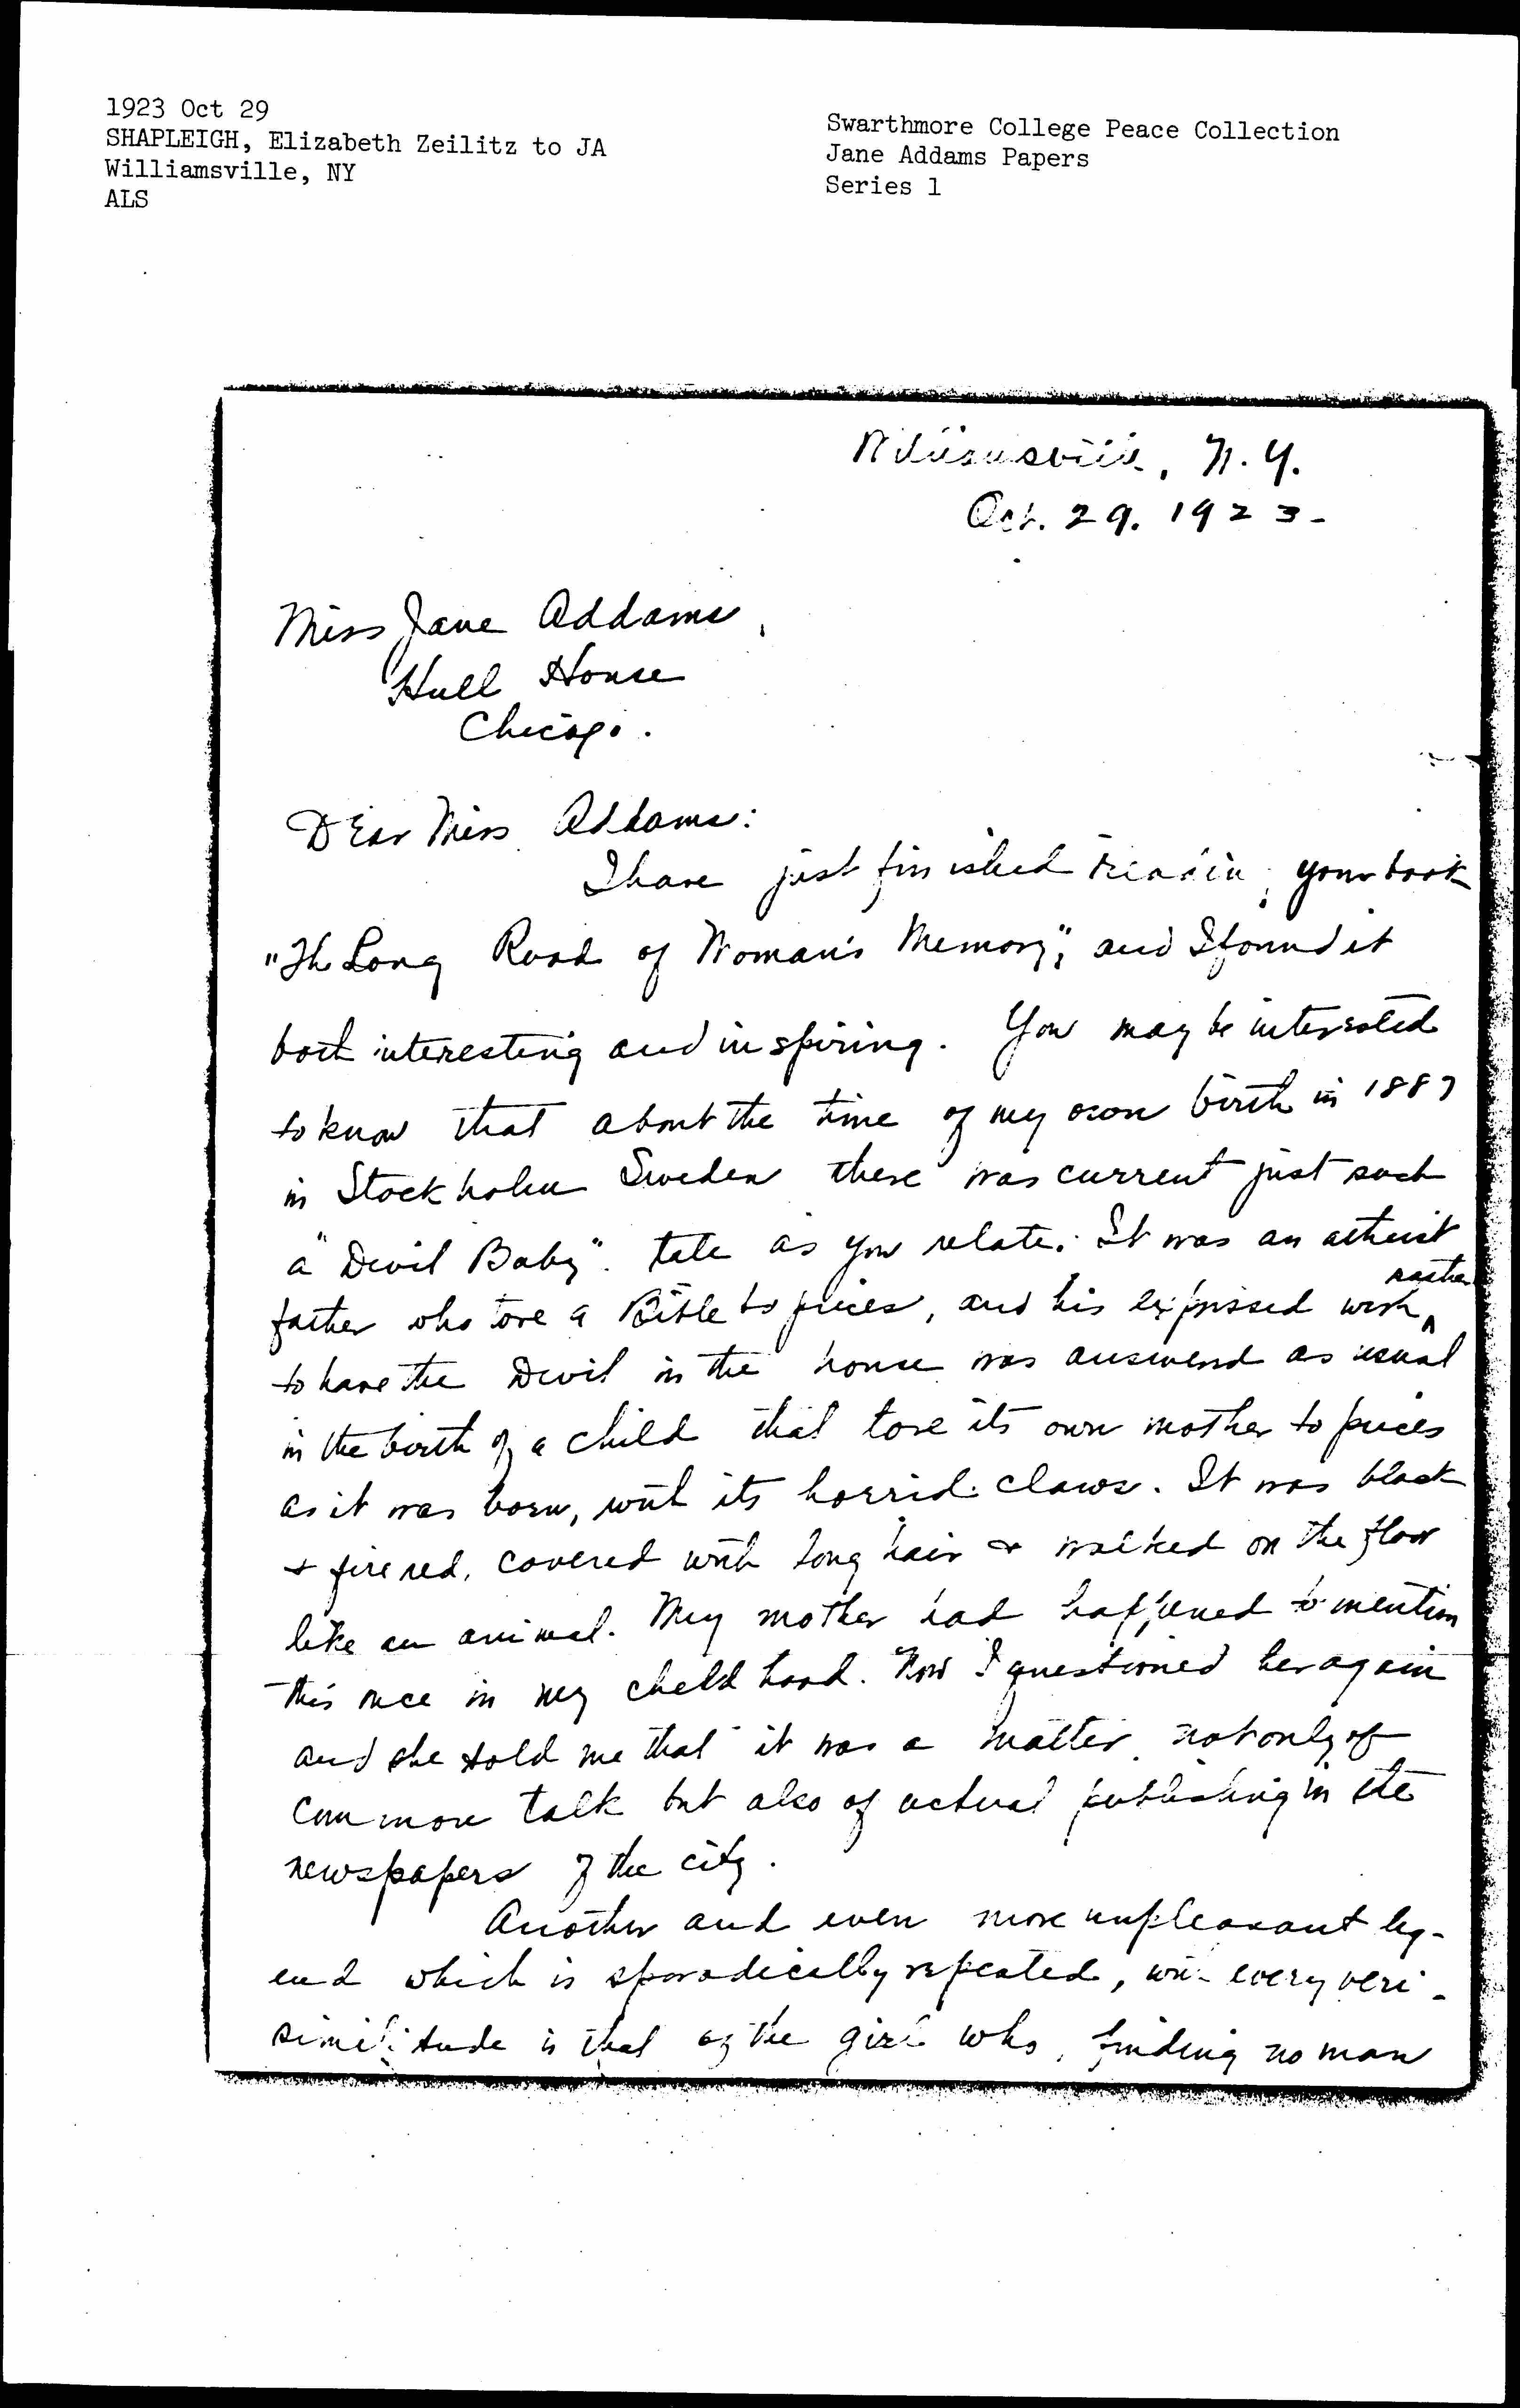 1923 Oct 29
SHAPLEIGH, Elizabeth Zeilitz to JA
Williamsville, NY
ALS
Swarthmore College Peace Collection
Jane Addams Papers
Series 1
Williamsville, N. Y.
Oct. 29. 1923-
Miss Jane Addams,
Hull House
Chicago.
Dear Miss Addams:
I have just finished reading your book
"The Long Road of Woman's Memory", and I found it
both interesting and inspiring. You may be interested
to know that about the time of my own birth in 1887
in Stockholm Sweden there was current just such
a "Devil Baby" tale as you relate. It was an atheist
father who tore a Bible to pieces, and his expressed wish rather
to have the Devil in the house was answered as usual
in the birth of a child that tore its own mother to pieces
as it was born, with its horrid claws. It was black
& fire red, covered with long hair & walked on the floor
like an animal. My mother had happened to mention
this once in my childhood. Now I questioned her again
and she told me that it was a matter not only of
common talk but also of actual publishing in the
newspapers of the city.
Another and even more unpleasant leg-
end which is sporadically repeated, with every veri-
similitude is that of the girl who, finding no man